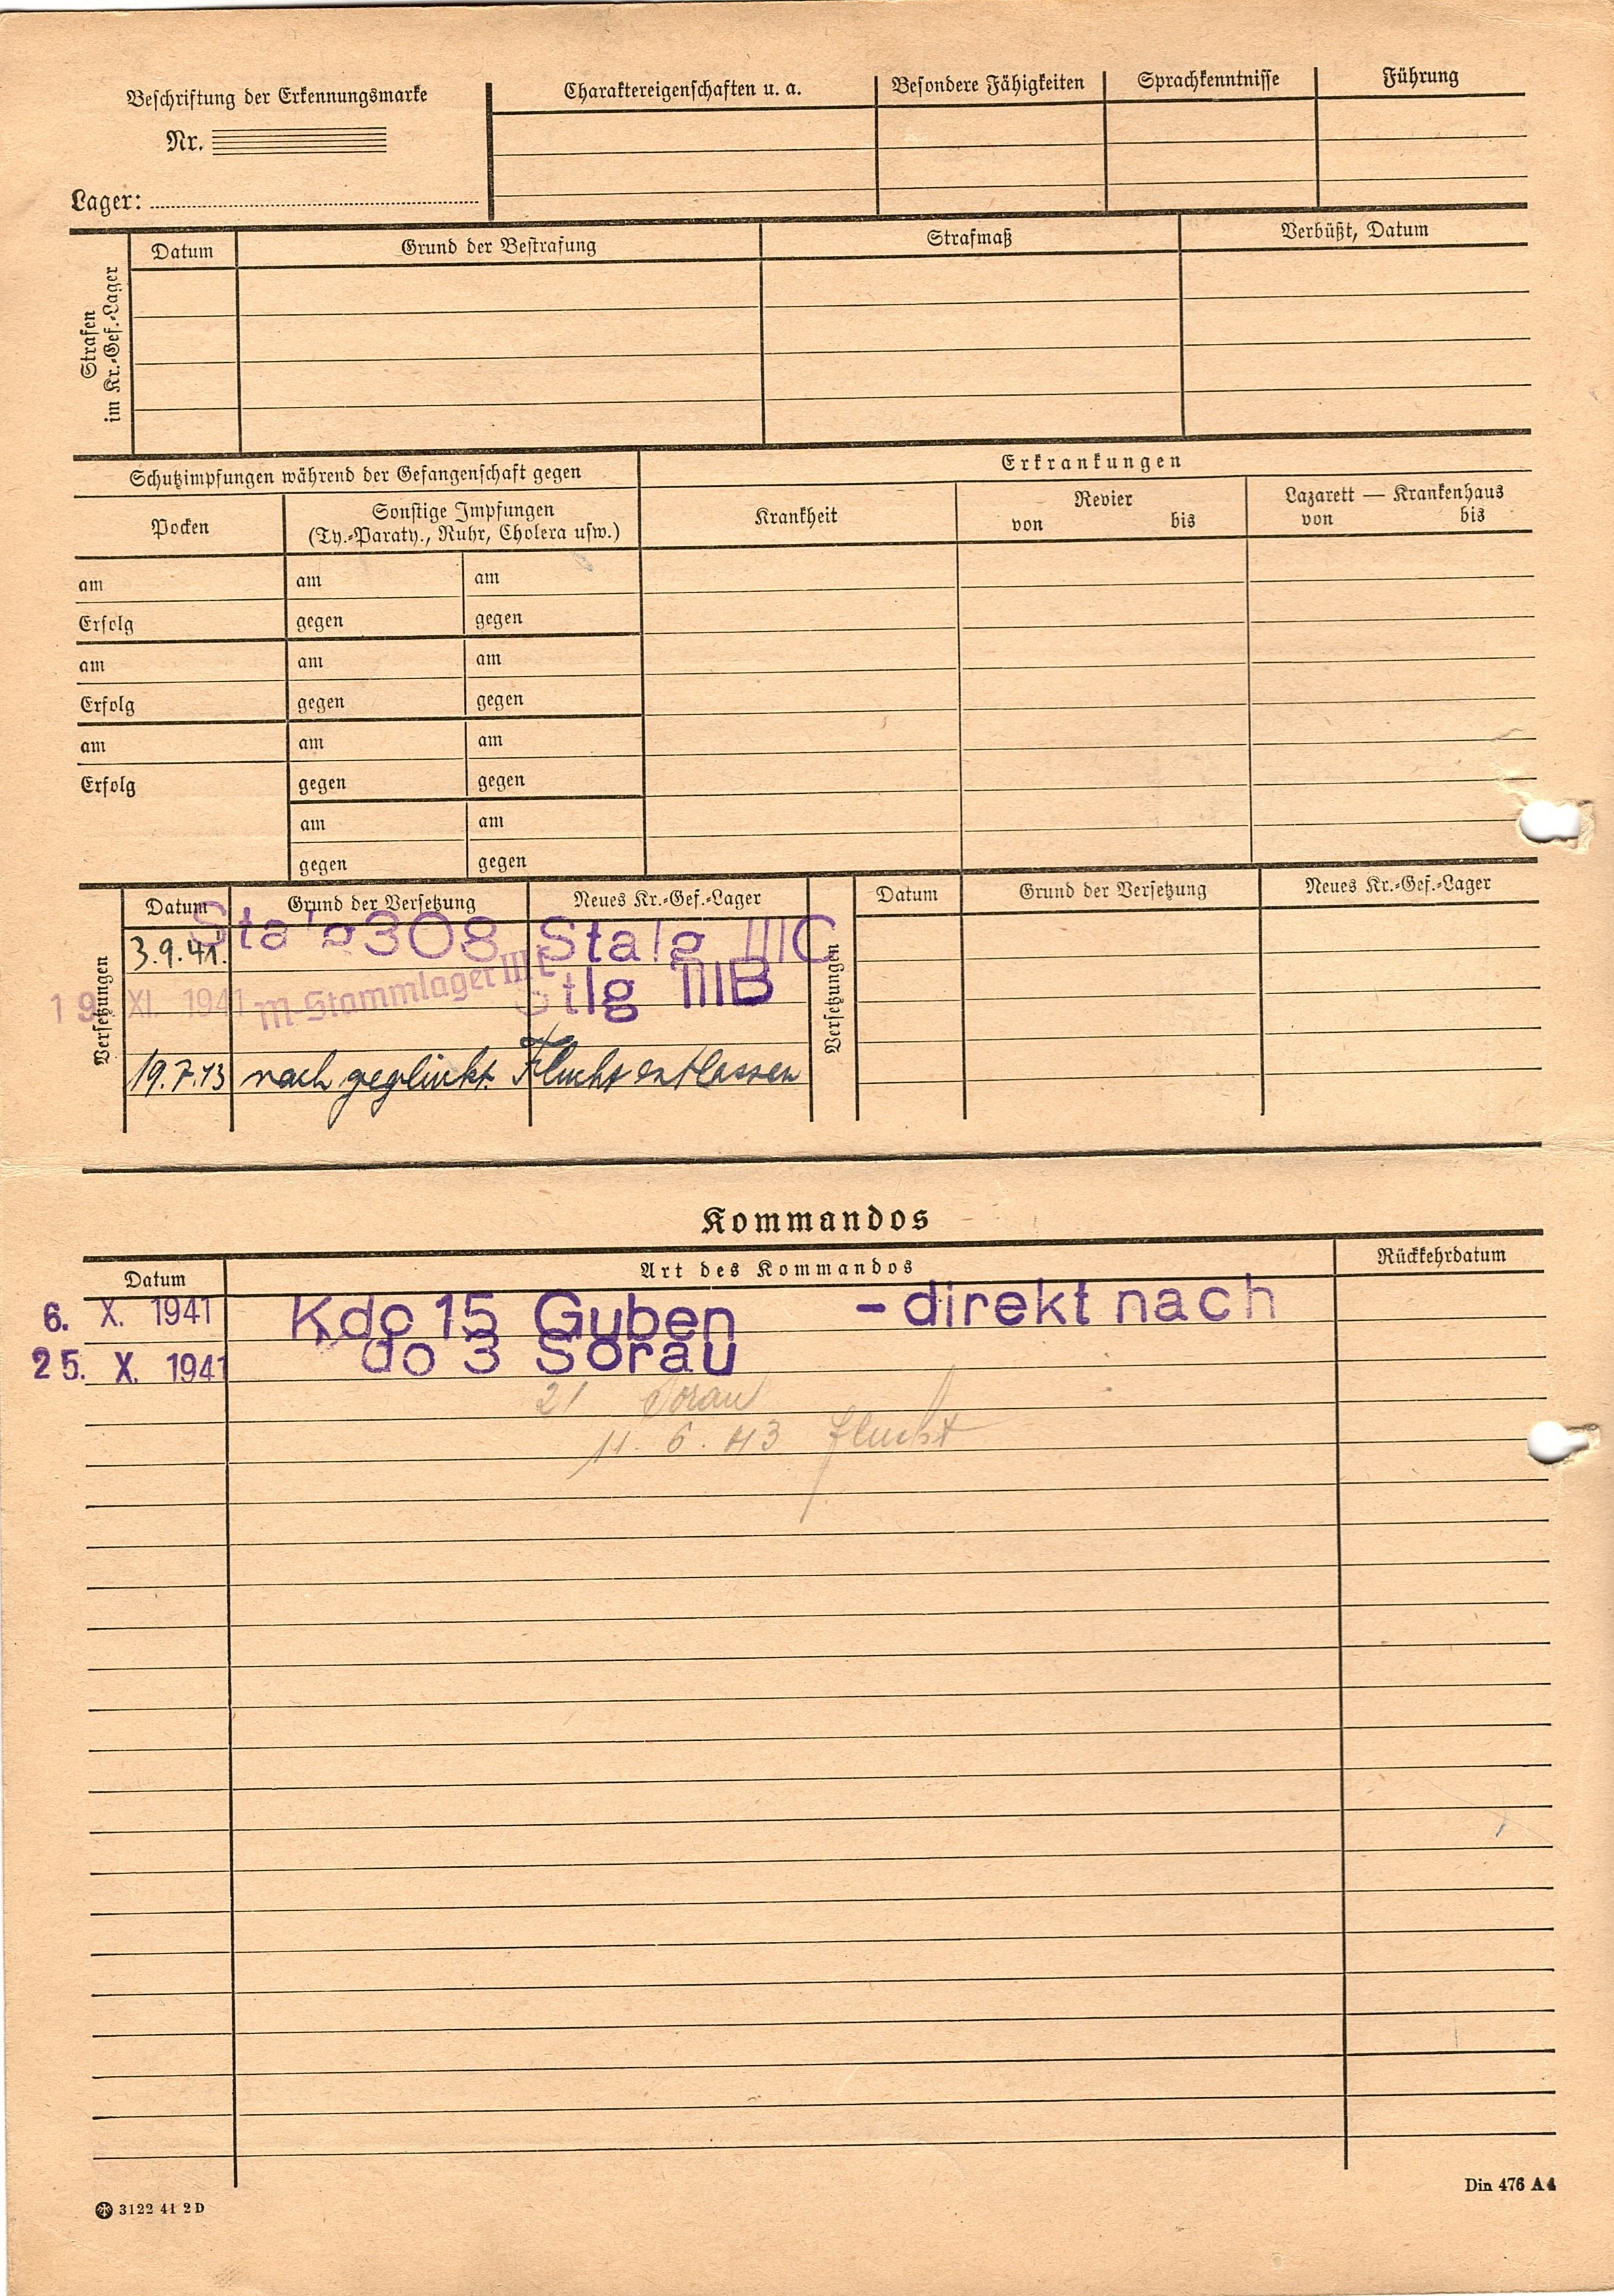 Beschriftung der Erkennungsmarke
Nr.
Lager:
Charaktereigenschaften u. a.
Besondere Fähigkeiten
Sprachkenntnisse
Führung
Strafen im Kr.-Gef.-Lager
Datum
Grund der Bestrafung
Strafmaß
Verbüßt, Datum
Schutzimpfungen während der Gefangenschaft gegen
Erkrankungen
Pocken
Sonstige Impfungen
(Ty.-Paraty., Ruhr, Cholera usw.)
Krankheit
Revier
von bis
Lazarett — Krankenhaus
von bis
am am am
Erfolg gegen gegen
am am am
Erfolg gegen gegen
am am am
Erfolg gegen gegen
am am
gegen gegen
Versetzungen
Datum Grund der Versetzung Neues Kr.-Gef.-Lager
3.9.41. Stalg 308 Stalg IIIC
19. XI. 1941 M-Stammlager III C Stlg IIIB
19.7.43 nach geglückt. Flucht entlassen
Versetzungen
Datum Grund der Versetzung Neues Kr.-Gef.-Lager
Kommandos
Datum Art des Kommandos Rückkehrdatum
6. X. 1941 Kdo 15 Guben - direkt nach
25. X. 1941 do 3 Sorau
21 Sorau
11. 6. 43 Flucht
3122 41 2 D
Din 476 A 4